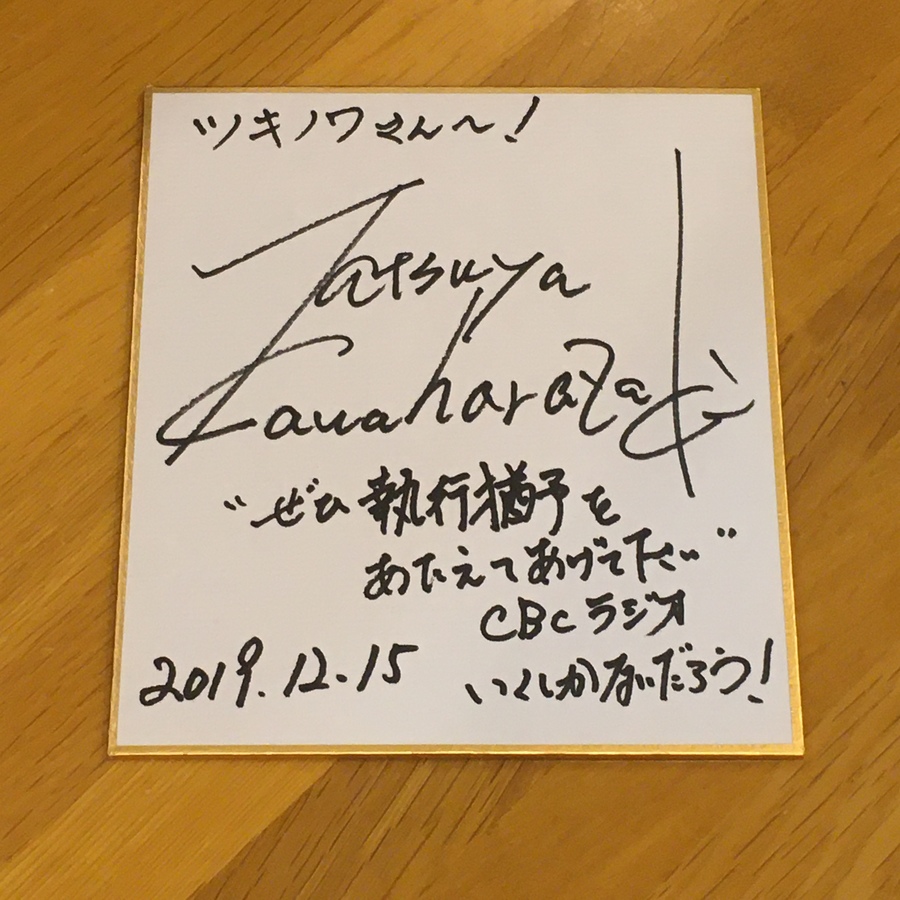 ツキノワさん〜!
Tatsuya
Kawaharazaki
“ぜひ執行猶予を
あたえてあげて下さい”
CBCラジオ
2019.12.15 いくしかないだろう!